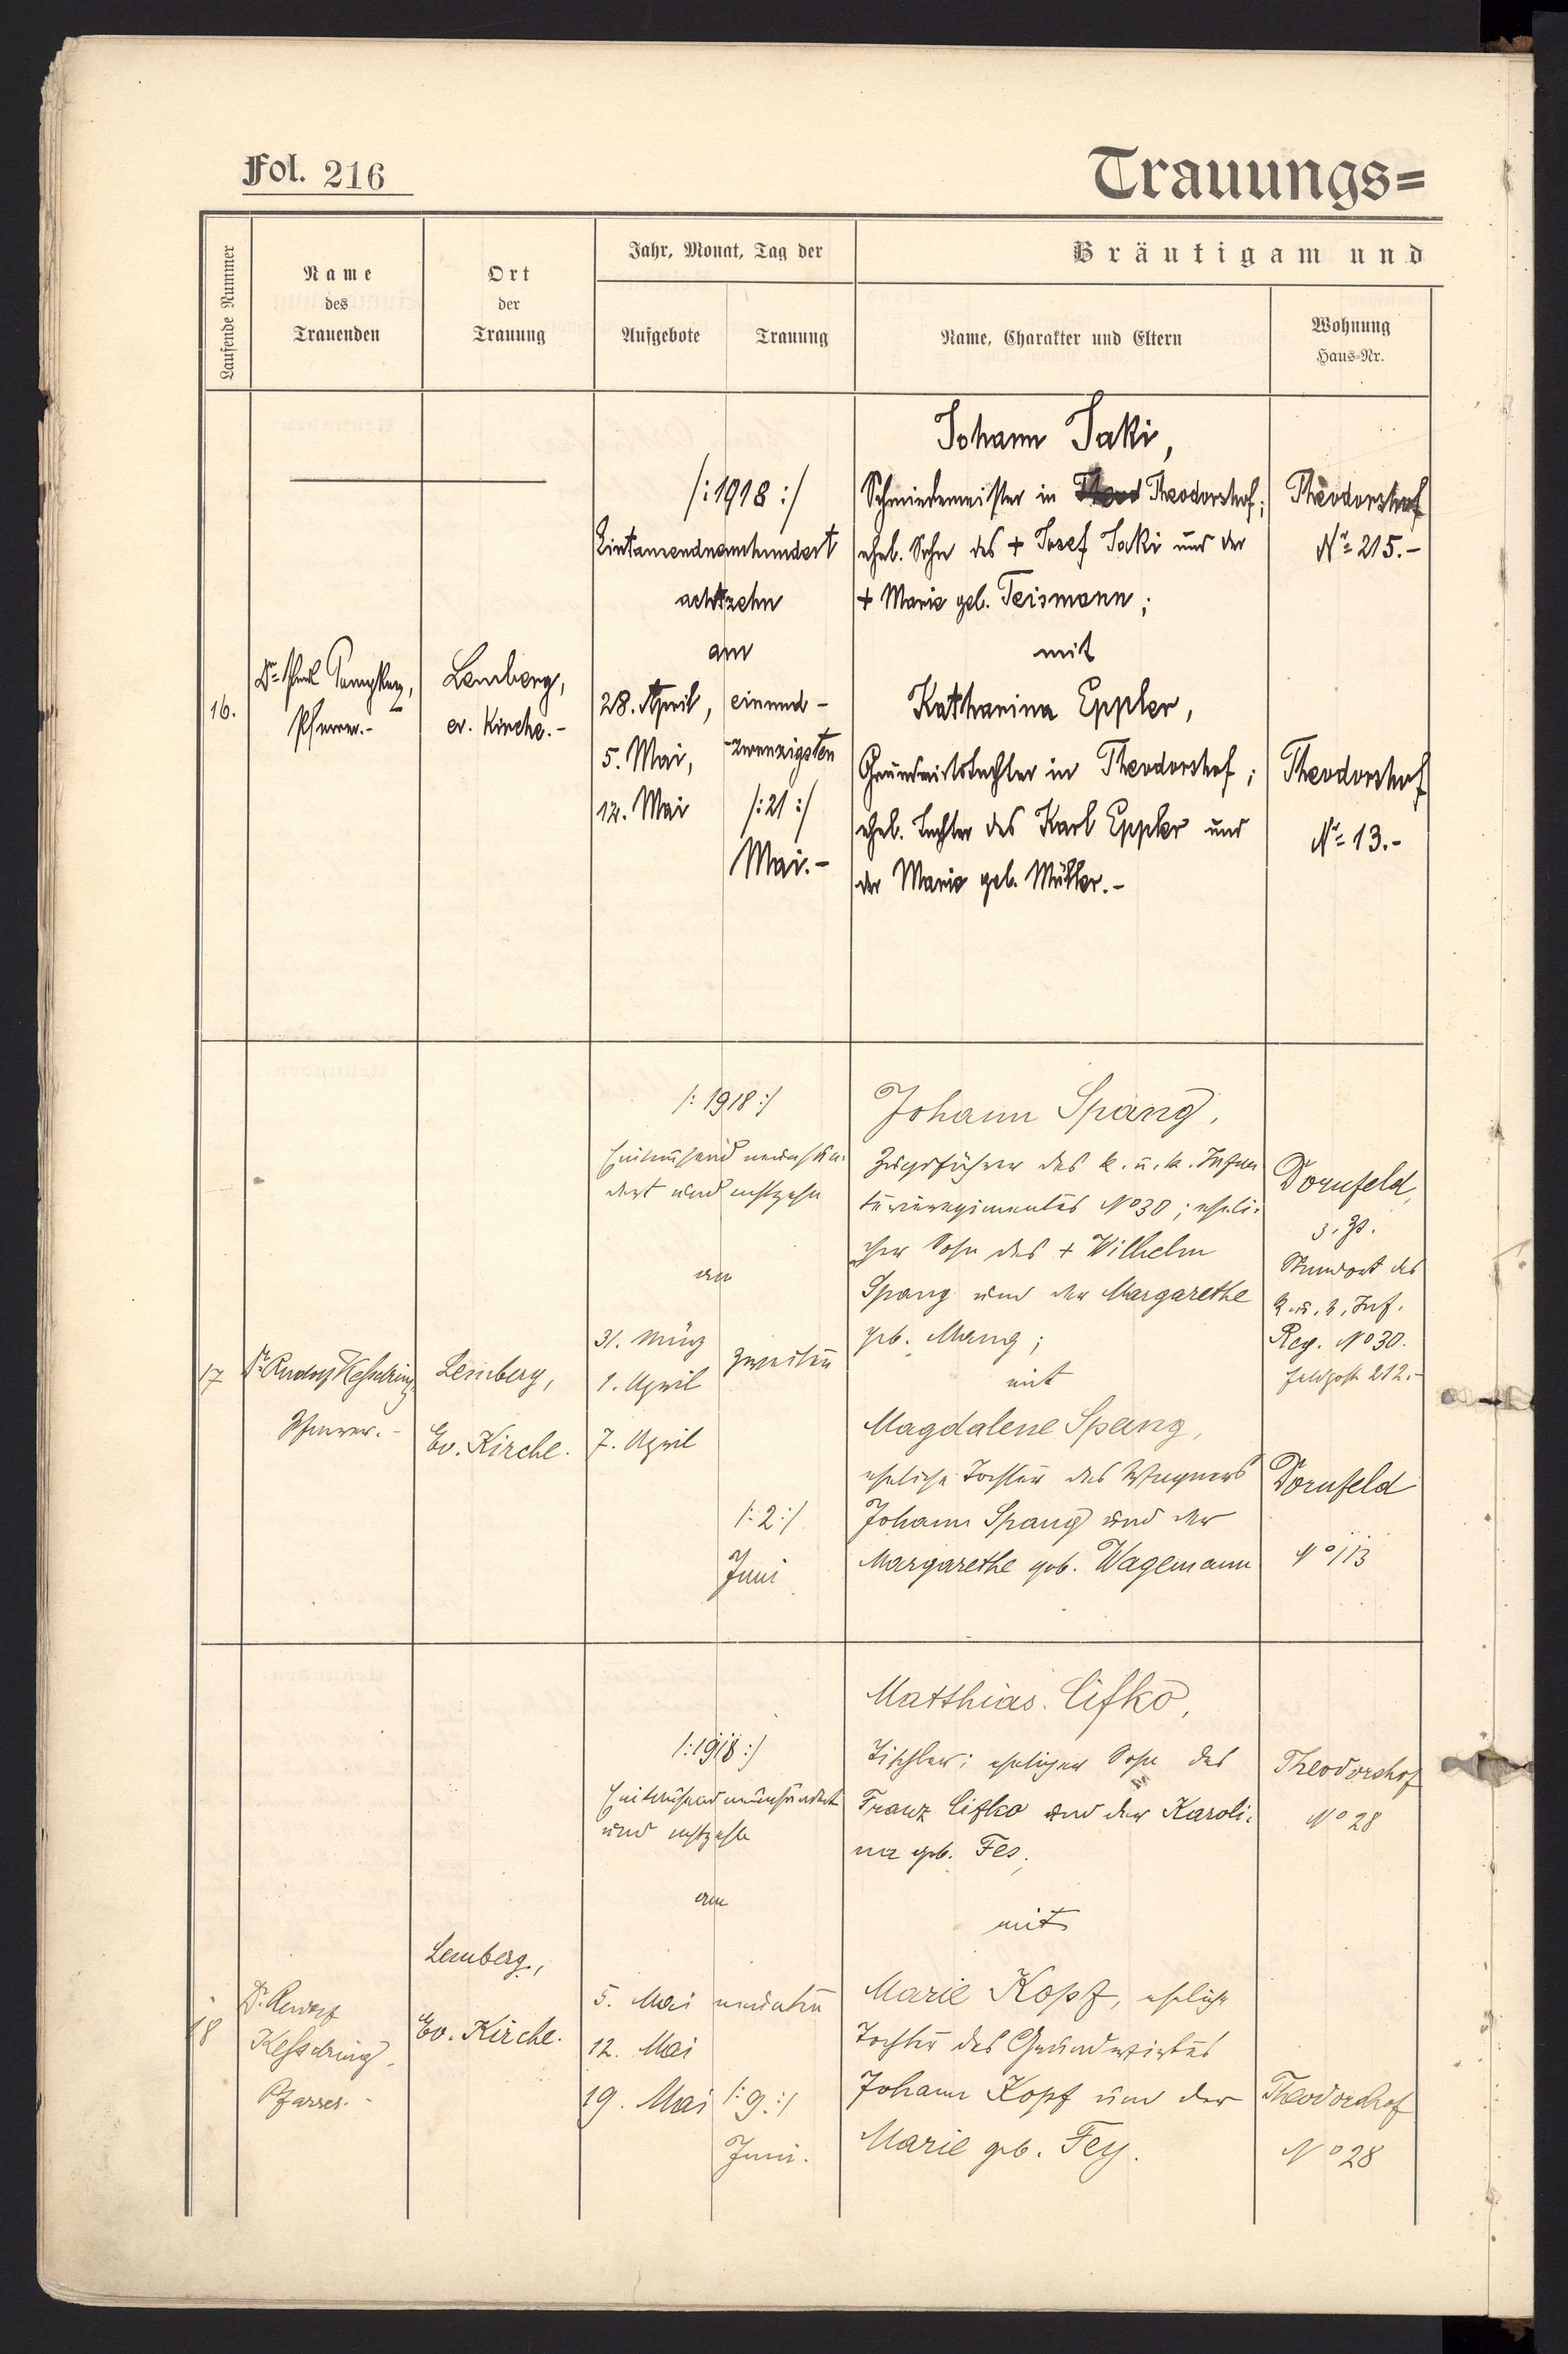 Fol. 216
Trauungs=
Laufende Nummer
Name
des
Trauenden
Ort
der
Trauung
Jahr, Monat, Tag der
Aufgebote
Trauung
Bräutigam und
Name, Charakter und Eltern
Wohnung
Haus-Nr.
16.
Pfarrer.-
Lemberg,
ev. Kirche.-
/:1918:/
Eintausendneunhundert
achtzehn
am
28. April,
5. Mai,
12. Mai
einund-
zwanzigsten
/:21:/
Mai.-
Johann Jaki,
Schmiedemeister in Theodorshof;
ehel. Sohn des + Josef Jaki und der
+ Marie geb. Teismann;
mit
Katharina Eppler,
Grundwirtstochter in Theodorshof;
ehel. Tochter des Karl Eppler und
der Marie geb. Müller.-
Theodorshof
Nr= 215.-
Theodorshof
Nr= 13.-
17
Dr Rudolf Kesselring
Pfarrer.-
Lemberg,
Ev. Kirche.
/:1918:/
Eintausend neunhun-
dert und achtzehn
am
31. März
1. April
7. April
zweiten
/:2:/
Juni
Johann Spang,
Zugsführer des k. u. k. Infan-
terieregimentes No 30; eheli-
cher Sohn des + Wilhelm
Spang und der Margarethe
geb. Mang;
mit
Magdalene Spang,
eheliche Tochter des Wagners
Johann Spang und der
Margarethe geb. Wagemann
Dornfeld,
z. Zt.
Standort des
k. u. k. Inf.
Reg. No 30.
Feldpost 212.-
Dornfeld
No 113
18
Dr. Rudolf
Kesselring,
Pfarrer.-
Lemberg,
Ev. Kirche.
/:1918:/
Eintausend neunhundert
und achtzehn
am
5. Mai
12. Mai
19. Mai
neunten
/:9:/
Juni.
Matthias Cifko,
Tischler; ehelicher Sohn des
Franz Cifko und der Karoli-
na geb. Fes,
mit
Marie Kopf, eheliche
Tochter des Grundwirtes
Johann Kopf und der
Marie geb. Fey.
Theodorshof
No 28
Theodorshof
No 28